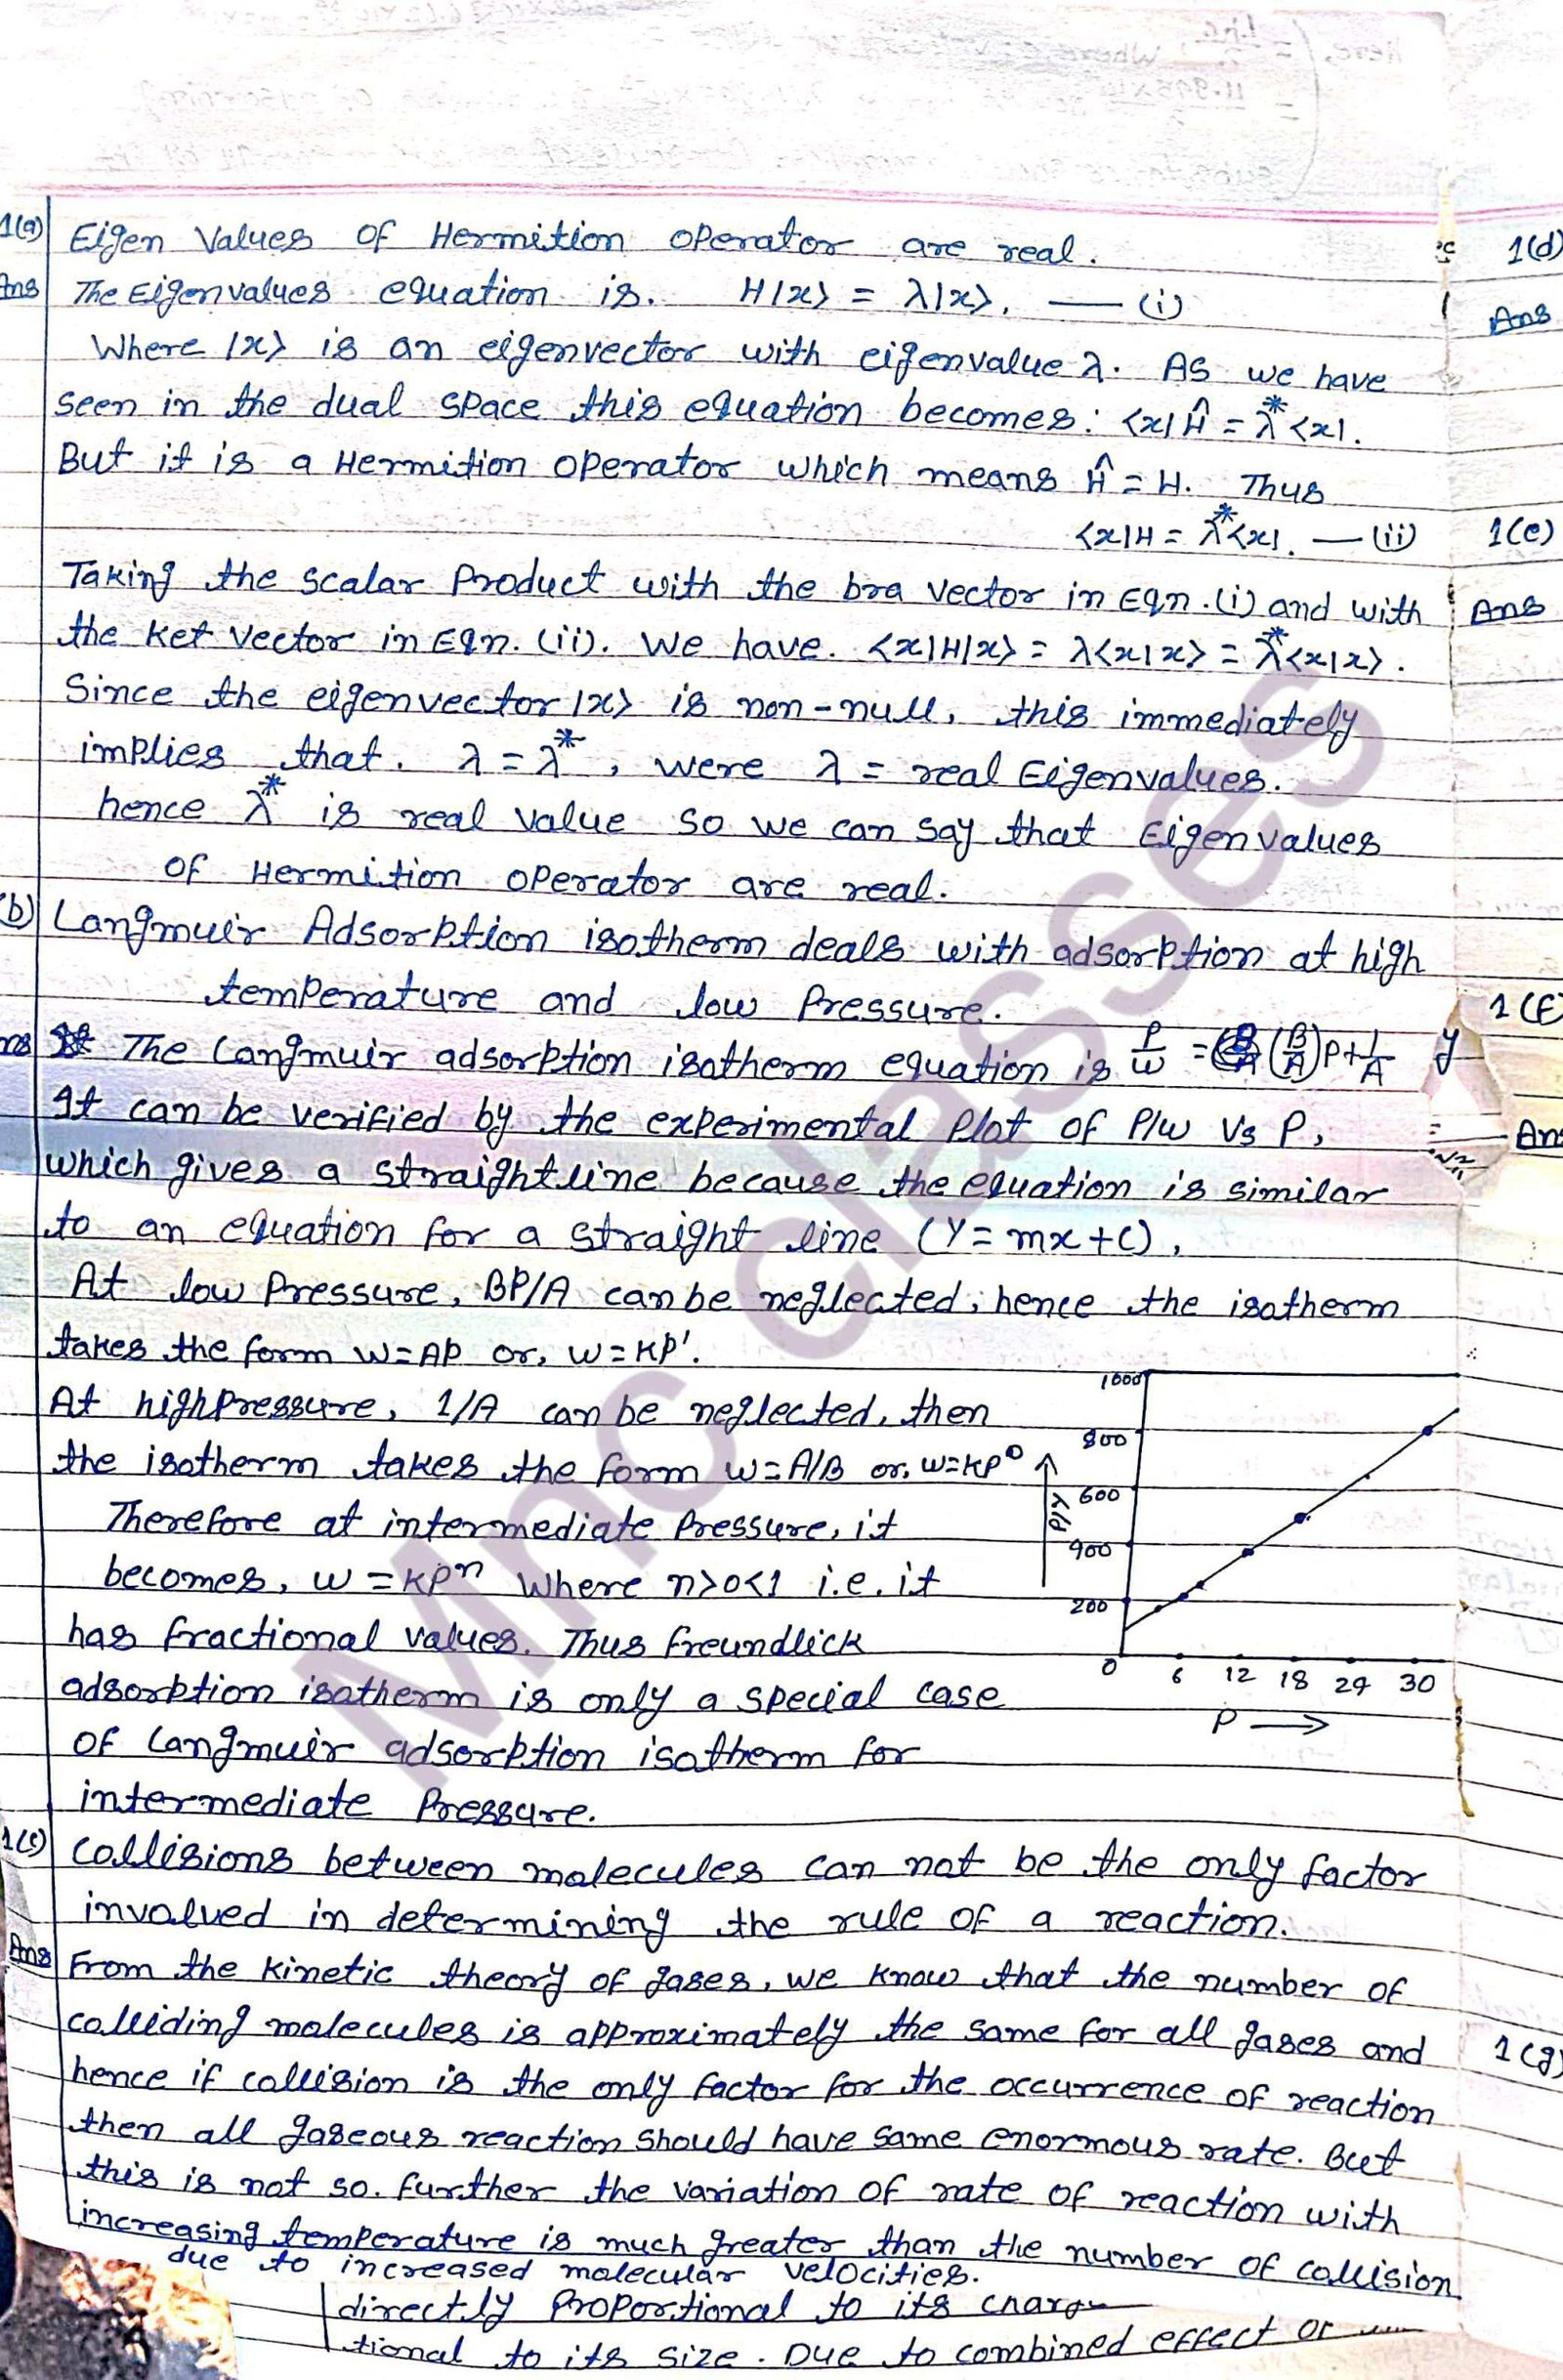 1(a) Eigen Values of Hermition operator are real.
Ans The Eigenvalues equation is. H|x> = λ|x>, — (i)
Where |x> is an eigenvector with eigenvalue λ. As we have
seen in the dual space this equation becomes: <x|Ĥ = λ*<x|.
But it is a Hermition operator which means Ĥ = H. Thus
<x|H = λ*<x|. — (ii)
Taking the scalar Product with the bra vector in Eqn.(i) and with
the ket vector in Eqn. (ii). We have. <x|H|x> = λ<x|x> = λ*<x|x>.
Since the eigenvector |x> is non-null, this immediately
implies that. λ = λ*, were λ = real Eigenvalues.
hence λ* is real value so we can say that Eigenvalues
of Hermition operator are real.
(b) Langmuir Adsorption isotherm deals with adsorption at high
temperature and low Pressure.
The Langmuir adsorption isotherm equation is P/w = (B/A)P+1/A
It can be verified by the experimental Plot of P/w Vs P,
which gives a straightline because the equation is similar
to an equation for a straight line (Y = mx+c),
At low Pressure, BP/A can be neglected, hence the isotherm
takes the form w=AP or, w=KP'.
At highPressure, 1/A can be neglected, then
the isotherm takes the form w=A/B or, w=KP⁰
Therefore at intermediate Pressure, it
becomes, w = KPⁿ Where n>0<1 i.e. it
has fractional values. Thus freundlick
adsorption isotherm is only a special case
of Langmuir adsorption isotherm for
intermediate Pressure.
1000
800
600
400
200
0 6 12 18 24 30
P/X
P →
1(c) Collisions between molecules can not be the only factor
involved in determining the rule of a reaction.
Ans From the kinetic theory of gases, we know that the number of
colliding molecules is approximately the same for all gases and
hence if collision is the only factor for the occurrence of reaction
then all gaseous reaction should have same enormous rate. But
this is not so. further the variation of rate of reaction with
increasing temperature is much greater than the number of collision
due to increased molecular velocities.
directly Proportional to its
tional to its size. Due to combined effect of
1(d)
Ans
1(e)
Ans
1(f)
Ans
1(g)
Mnc classes